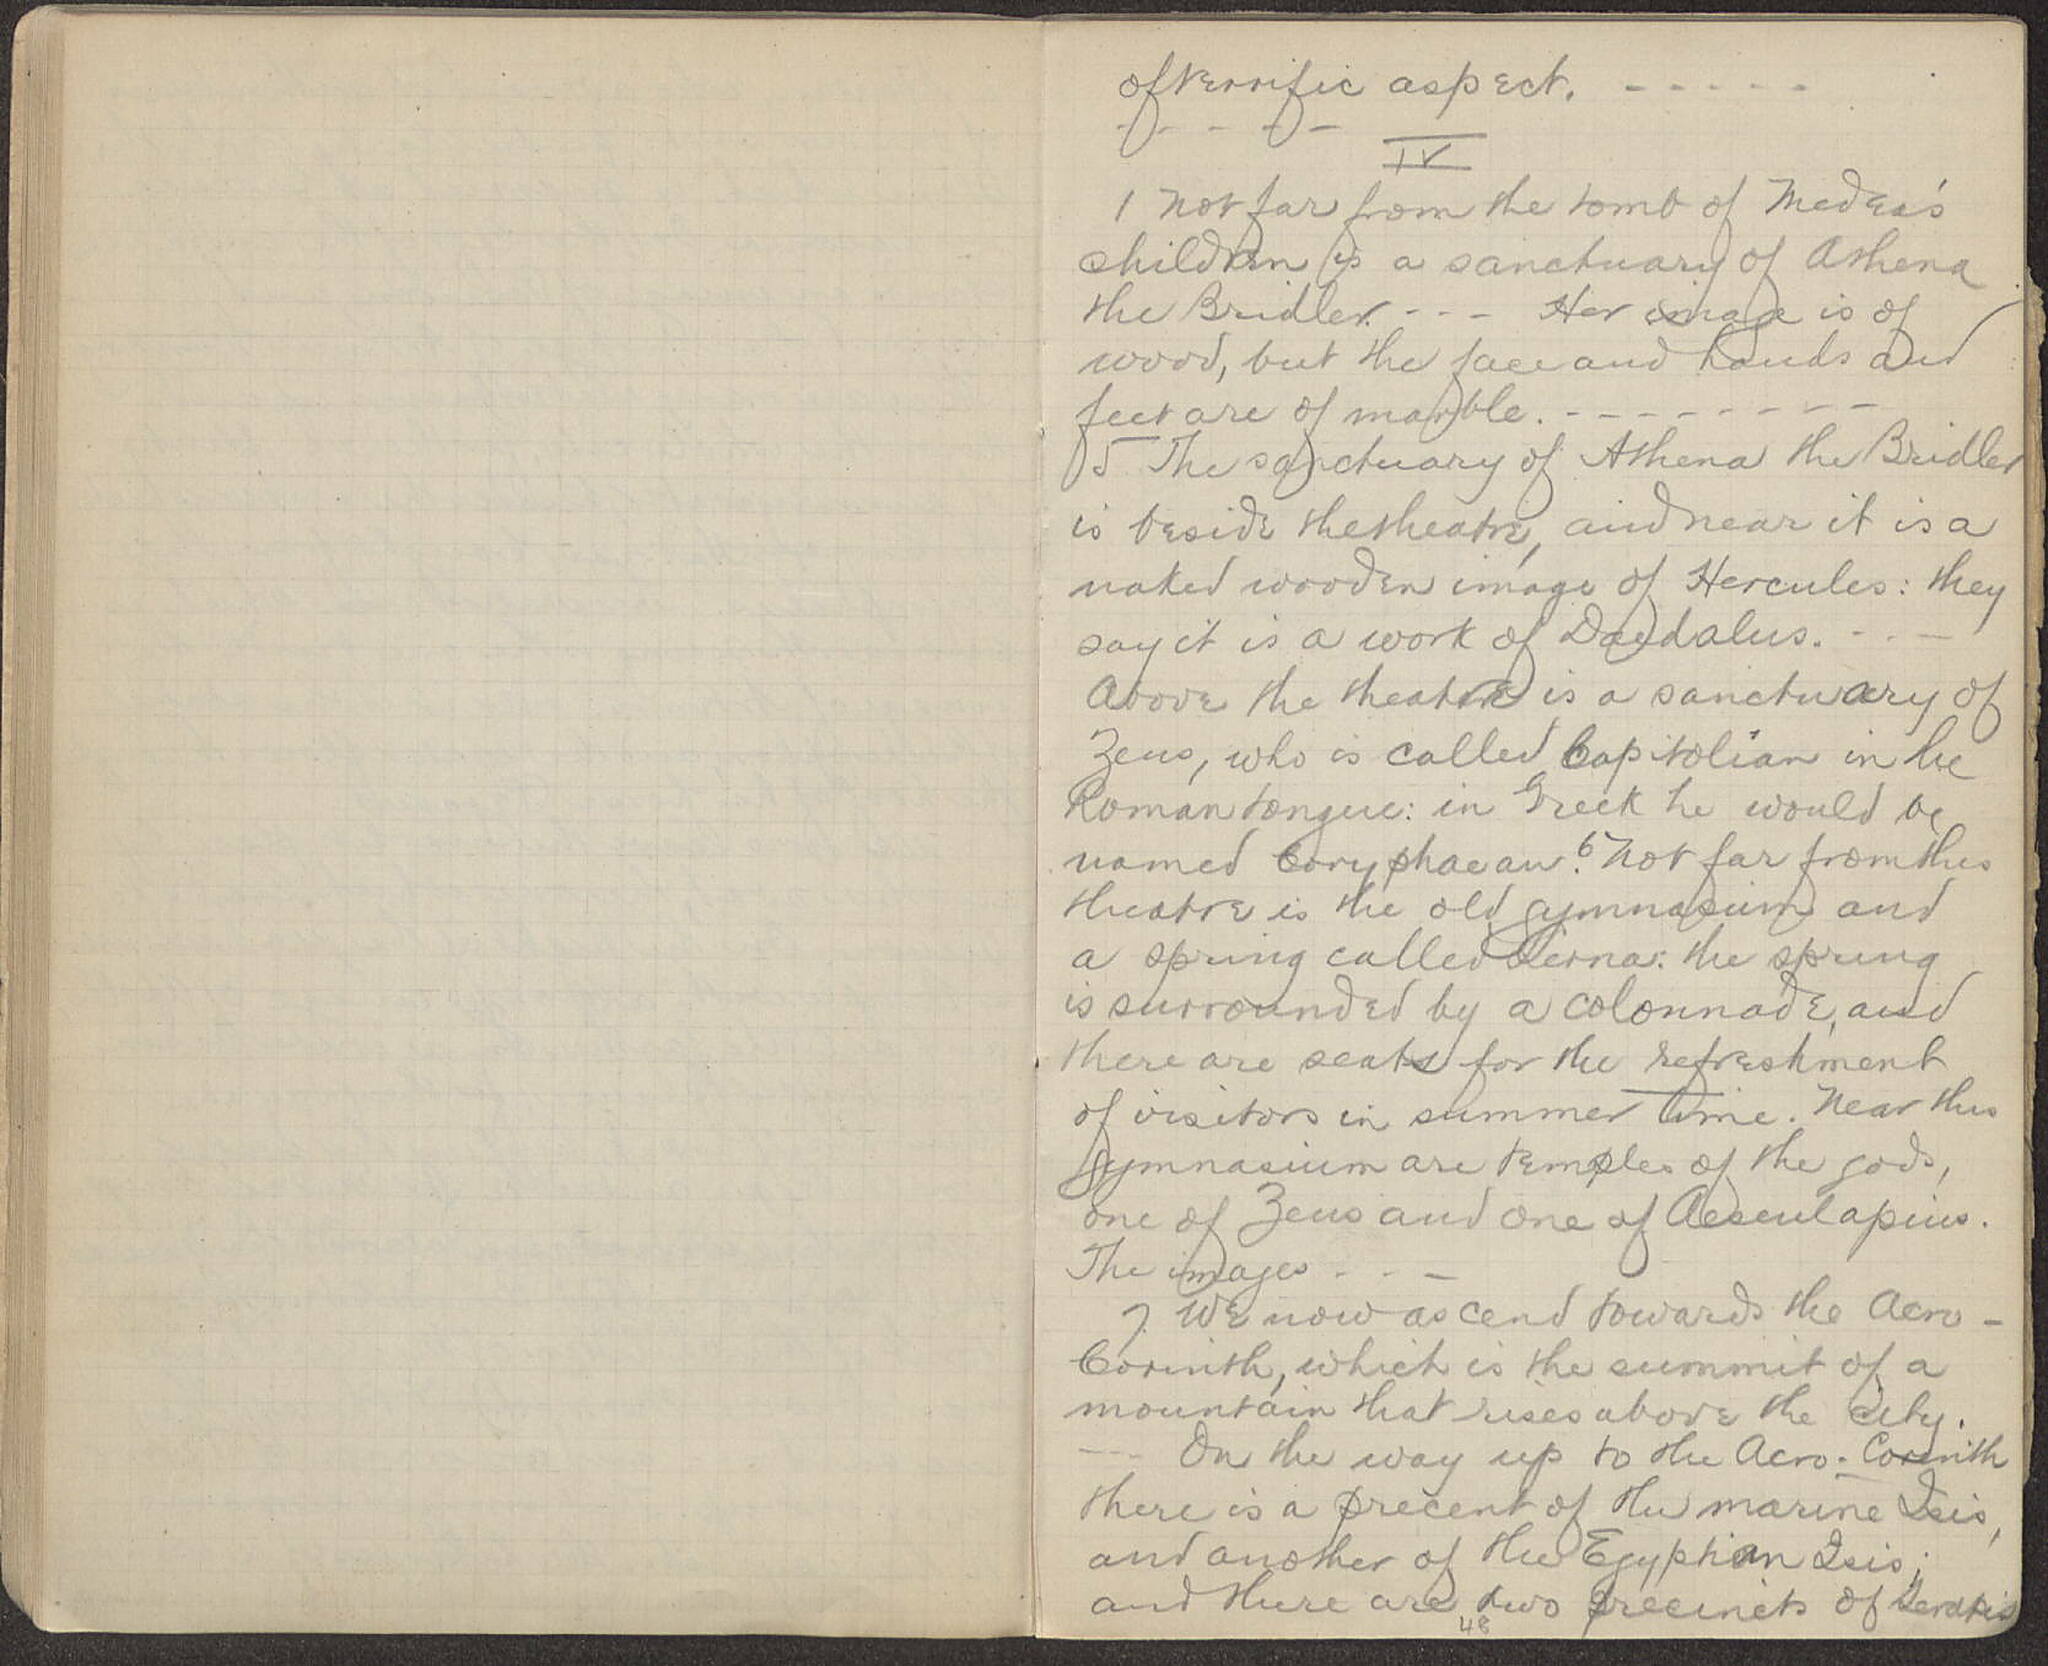 of terrific aspect. - - - - -
- - - - -
IV
1 Not far from the tomb of Medea's
children is a sanctuary of Athena
the Bridler. - - - Her image is of
wood, but the face and hands and
feet are of marble. - - - - - - - -
5 The sanctuary of Athena the Bridler
is beside the theatre, and near it is a
naked wooden image of Hercules: they
say it is a work of Daedalus. - - -
Above the theatre is a sanctuary of
Zeus, who is called Capitolian in the
Roman tongue: in Greek he would be
named Coryphaean. 6 Not far from this
theatre is the old gymnasium and
a spring called Lerna: the spring
is surrounded by a colonnade, and
there are seats for the refreshment
of visitors in summer time. Near this
gymnasium are temples of the gods,
one of Zeus and one of Aesculapius.
The images - - -
7. We now ascend towards the Acro-
Corinth, which is the summit of a
mountain that rises above the city.
--- On the way up to the Acro-Corinth
there is a precent of the marine Isis,
and another of the Egyptian Isis;
and there are two precincts of Serapis
48